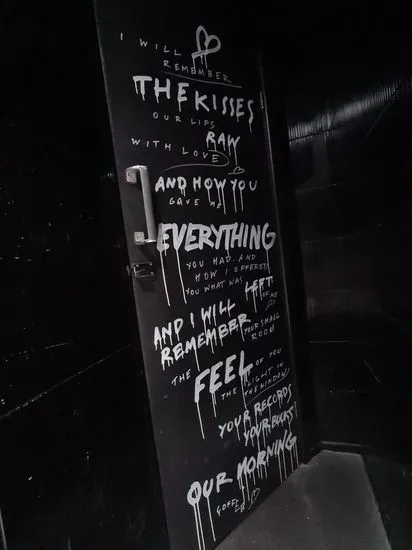 I WILL
REMEMBER
THE KISSES
OUR LIPS
RAW
WITH LOVE
AND HOW YOU
GAVE ME
EVERYTHING
YOU HAD AND
HOW I OFFERED
YOU WHAT WAS LEFT
OF ME
AND I WILL
REMEMBER YOUR SMALL
ROOM
THE FEEL OF YOU
THE LIGHT IN
THE WINDOW
YOUR RECORDS
YOUR BOOKS
OUR MORNING
COFFEE